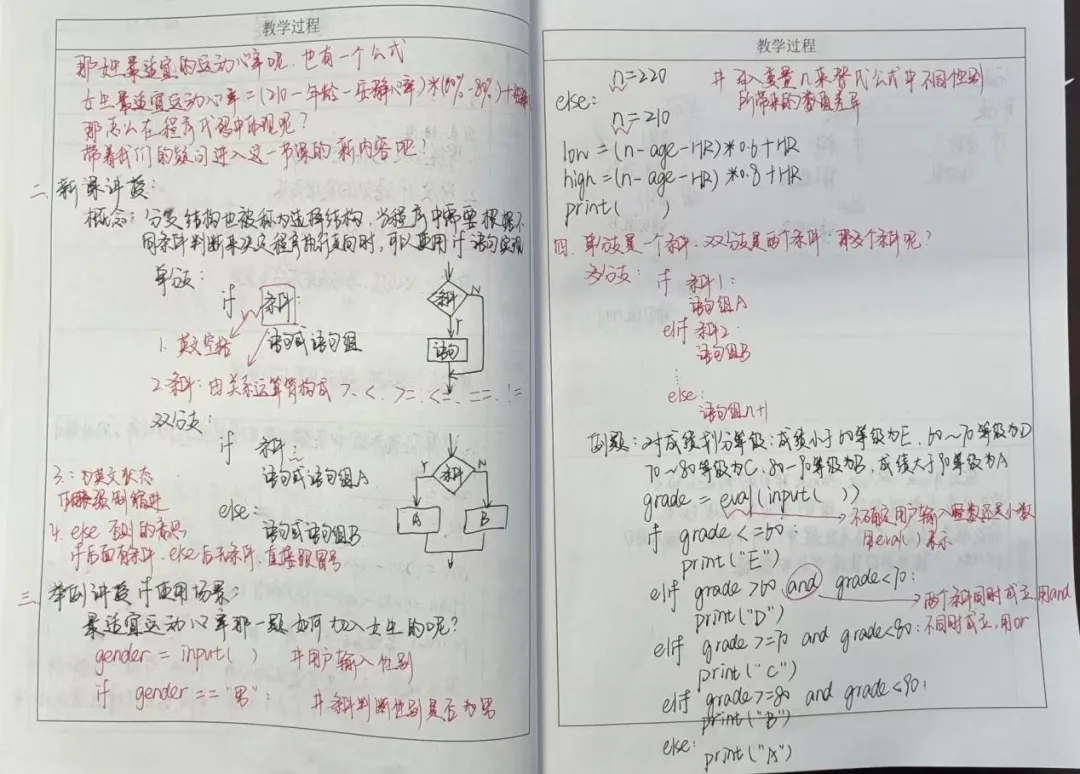 教学过程
那她最适宜的运动心率呢，也有一个公式
女生最适宜运动心率=(210-年龄-安静心率)*(60%-80%)+
那怎么在程序代码中体现呢？
带着我们的疑问进入这一节课的新内容吧！
二、新课讲授：
概念：分支结构也被称为选择结构，当程序中需要根据不
同条件判断来决定程序执行方向时，可以使用if语句实现
单分支：
if 条件：
语句或语句组
1. 英文空格
2. 条件：由关系运算符构成 >、<、>=、<=、==、!=
条件
N
Y
语句
双分支：
if 条件：
语句或语句组A
else：
语句或语句组B
3. ：为英文状态
缩进
4. else 否则的意思
if后面有条件，else后无条件，直接跟冒号
条件
Y
N
A
B
三、举例讲授if使用场景：
最适宜运动心率那一题如何切入女生的呢？
gender = input( ) #用户输入性别
if gender == "男"： #条件判断性别是否为男
教学过程
n=220 #引入变量n来替代公式中不同性别
所带来的数值差异
else:
n=210
low = (n-age-HR)*0.6+HR
high = (n-age-HR)*0.8+HR
print( )
四、单分支是一个条件，双分支是两个条件，那多个条件呢？
多分支：if 条件1：
语句组A
elif 条件2：
语句组B
⋮
else：
语句组n+1
例题：对成绩划分等级：成绩小于60等级为E，60~70等级为D
70~80等级为C，80-90等级为B，成绩大于90等级为A
grade = eval(input( ))
不确定用户输入整数还是小数
用eval()表示
if grade <=60：
print("E")
elif grade >60 and grade<70：
两个条件同时成立，用and
print("D")
不同时成立，用or
elif grade >=70 and grade<80：
print("C")
elif grade>=80 and grade<90：
print("B")
else：
print("A")